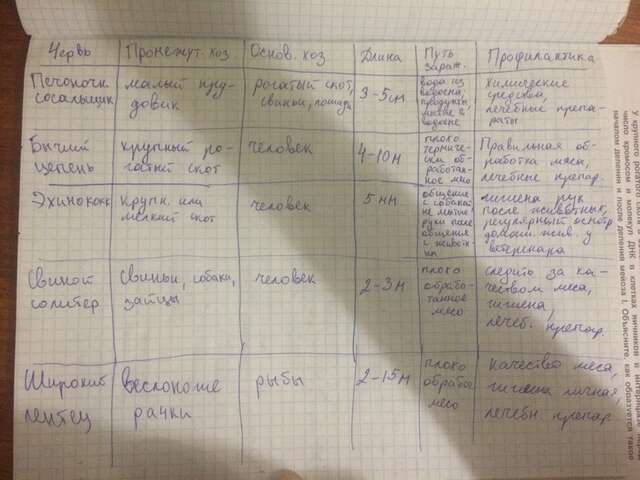 Червь Промежут. хоз Основ. хоз Длина Путь зараж. Профилактика
Печоночн. сосальщик
малый пру-
довик
рогатый скот,
свиньи, лошади
3-5см
вода из
водоема,
продукты,
мытые в
водоеме
химические
средства,
лечебные препа-
раты
Бычий
цепень
крупный ро-
гатый скот
человек
4-10м
плохо
термиче-
ски об-
работан-
ное мясо
Правильная об-
работка мяса,
лечебные препар.
Эхинококк
Крупн. или
мелкий скот
человек
5 мм
общение
с собакой
не мытые
руки после
общения
с животн
гигиена рук
после животных,
регулярный осмотр
домашн. жив. у
ветеринара
Свиной
солитер
Свиньи, собаки,
зайцы
человек
2-3м
плохо
обрабо-
танное
мясо
следить за ка-
чеством мяса,
гигиена,
лечеб. препар.
Широкий
лентец
веслоногие
рачки
рыбы
2-15м
плохо
обработ
мясо
качество мяса,
гигиена личная,
лечебн. препар.
У крупного рогатого скота в
число хромосом и молекул ДНК в клетках яичников в интерфазе
началом деления и после деления мейоза I. Объясните как образуется такое